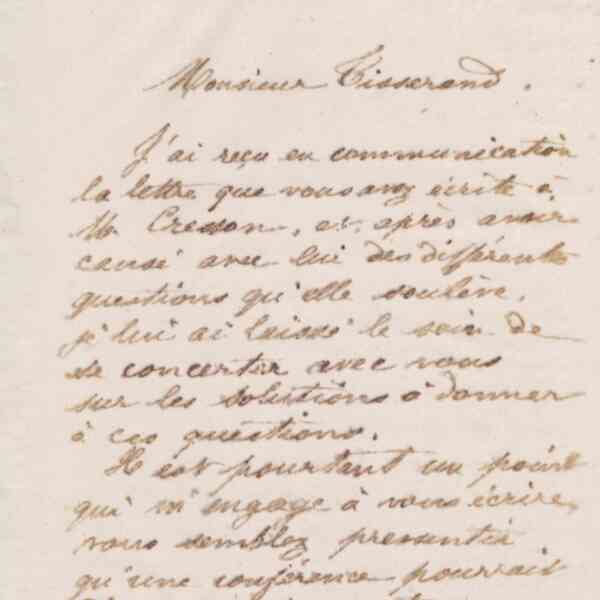 Monsieur Tisserand.
J'ai reçu en communication
la lettre que vous avez écrite à
Mr Cresson, et, après avoir
causé avec lui des différentes
questions qu'elle soulève,
je lui ai laissé le soin de
se concerter avec vous
sur les solutions à donner
à ces questions.
Il est pourtant un point
qui m'engage à vous écrire,
vous semblez pressentir
qu'une conférence pourrait